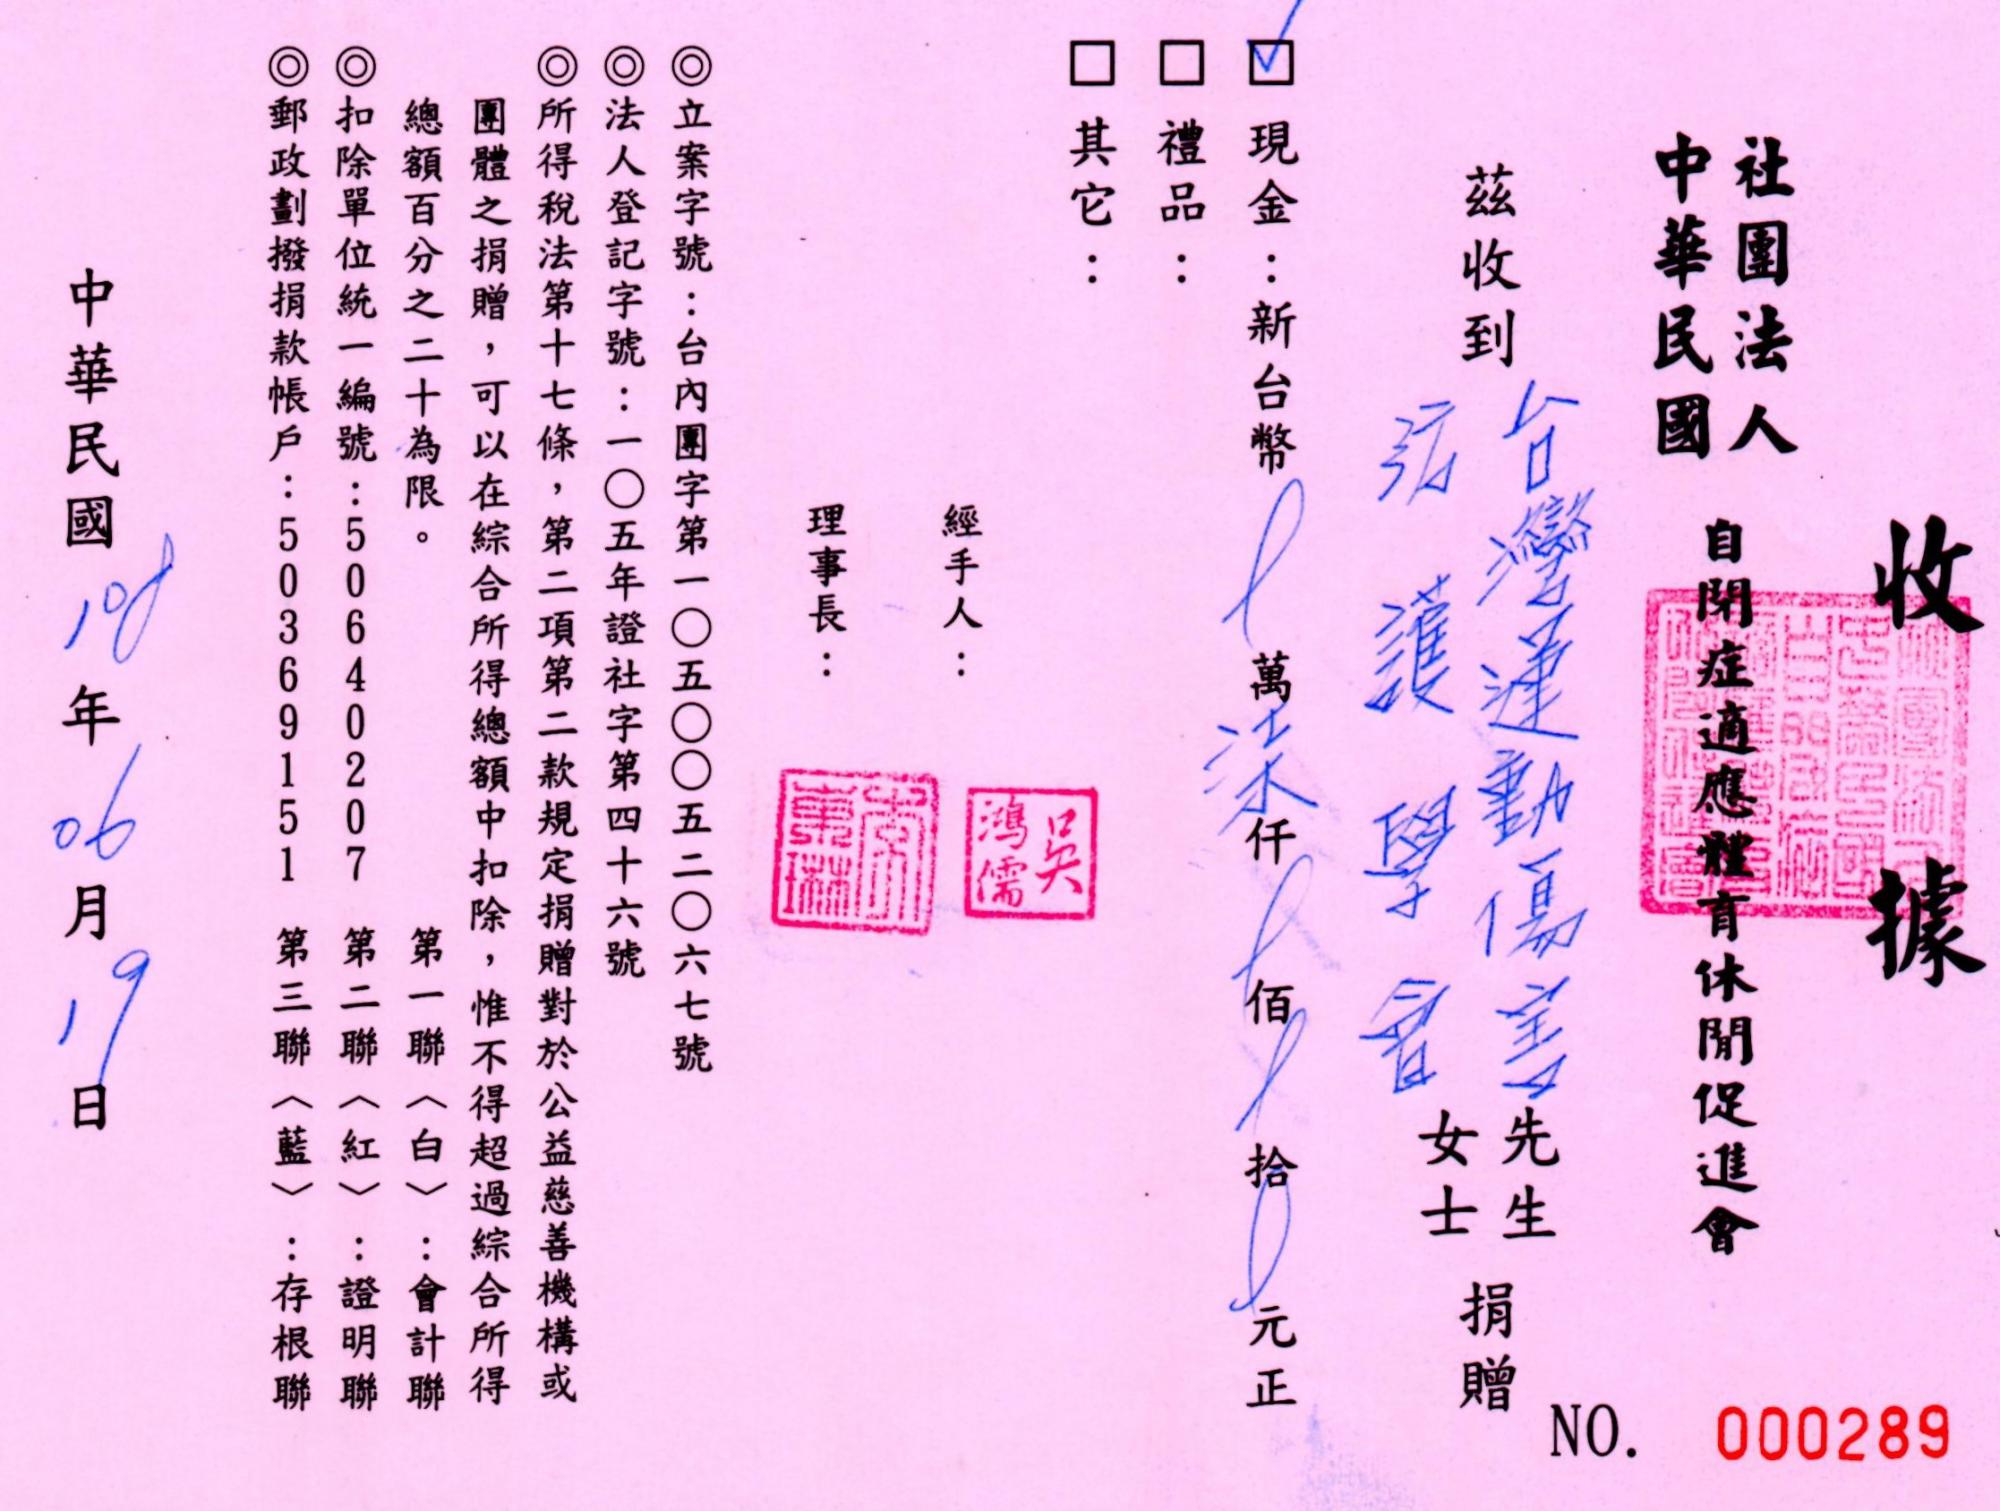 收據
社團法人
中華民國
自閉症適應體育休閒促進會
茲收到 台灣運動傷害防護學會 先生 女士 捐贈
現金：新台幣 萬 柒 仟 佰 拾 元正
禮品：
其它：
經手人：
吳鴻儒
理事長：
◎立案字號：台內團字第一〇五〇〇五二〇六七號
◎法人登記字號：一〇五年證社字第四十六號
◎所得稅法第十七條，第二項第二款規定捐贈對於公益慈善機構或
團體之捐贈，可以在綜合所得總額中扣除，惟不得超過綜合所得
總額百分之二十為限。 第一聯〈白〉：會計聯
◎扣除單位統一編號：50640207 第二聯〈紅〉：證明聯
◎郵政劃撥捐款帳戶：50369151 第三聯〈藍〉：存根聯
中華民國108年06月19日
NO. 000289